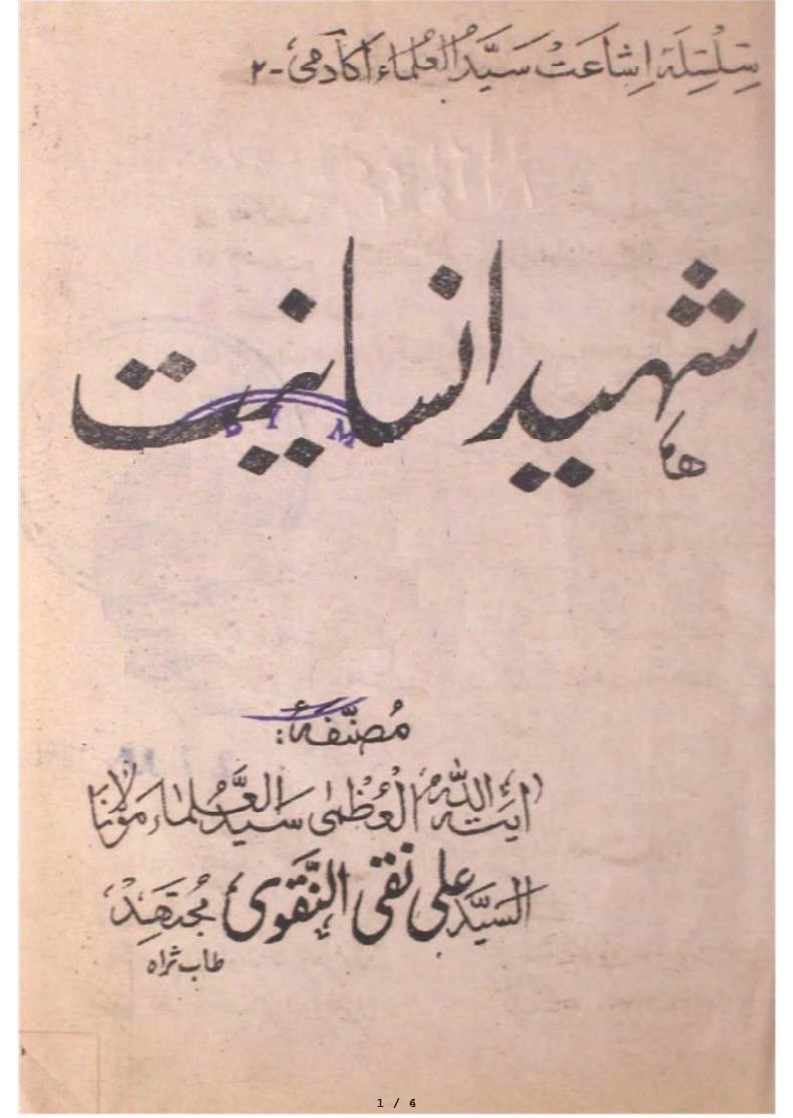 سِلْسِلَۂ اِشَاعَتْ سَیَّدُ العُلماء اَکادمیْ - ۲
شہید انسانیت
مُصَنّفہٗ:
آیتہ اللّٰہُ العُظمٰی سَیّدُ العُلماء مَوْلانَا
السیّد علی نقی النّقوی مُجتَھِدْ
طاب ثراہ
D I M
1 / 4